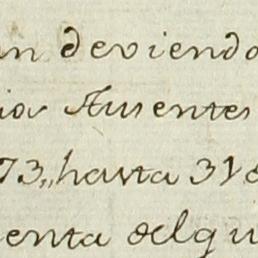 n deviendo
ior Ausentes
73,, hasta 31 d
enta delqu